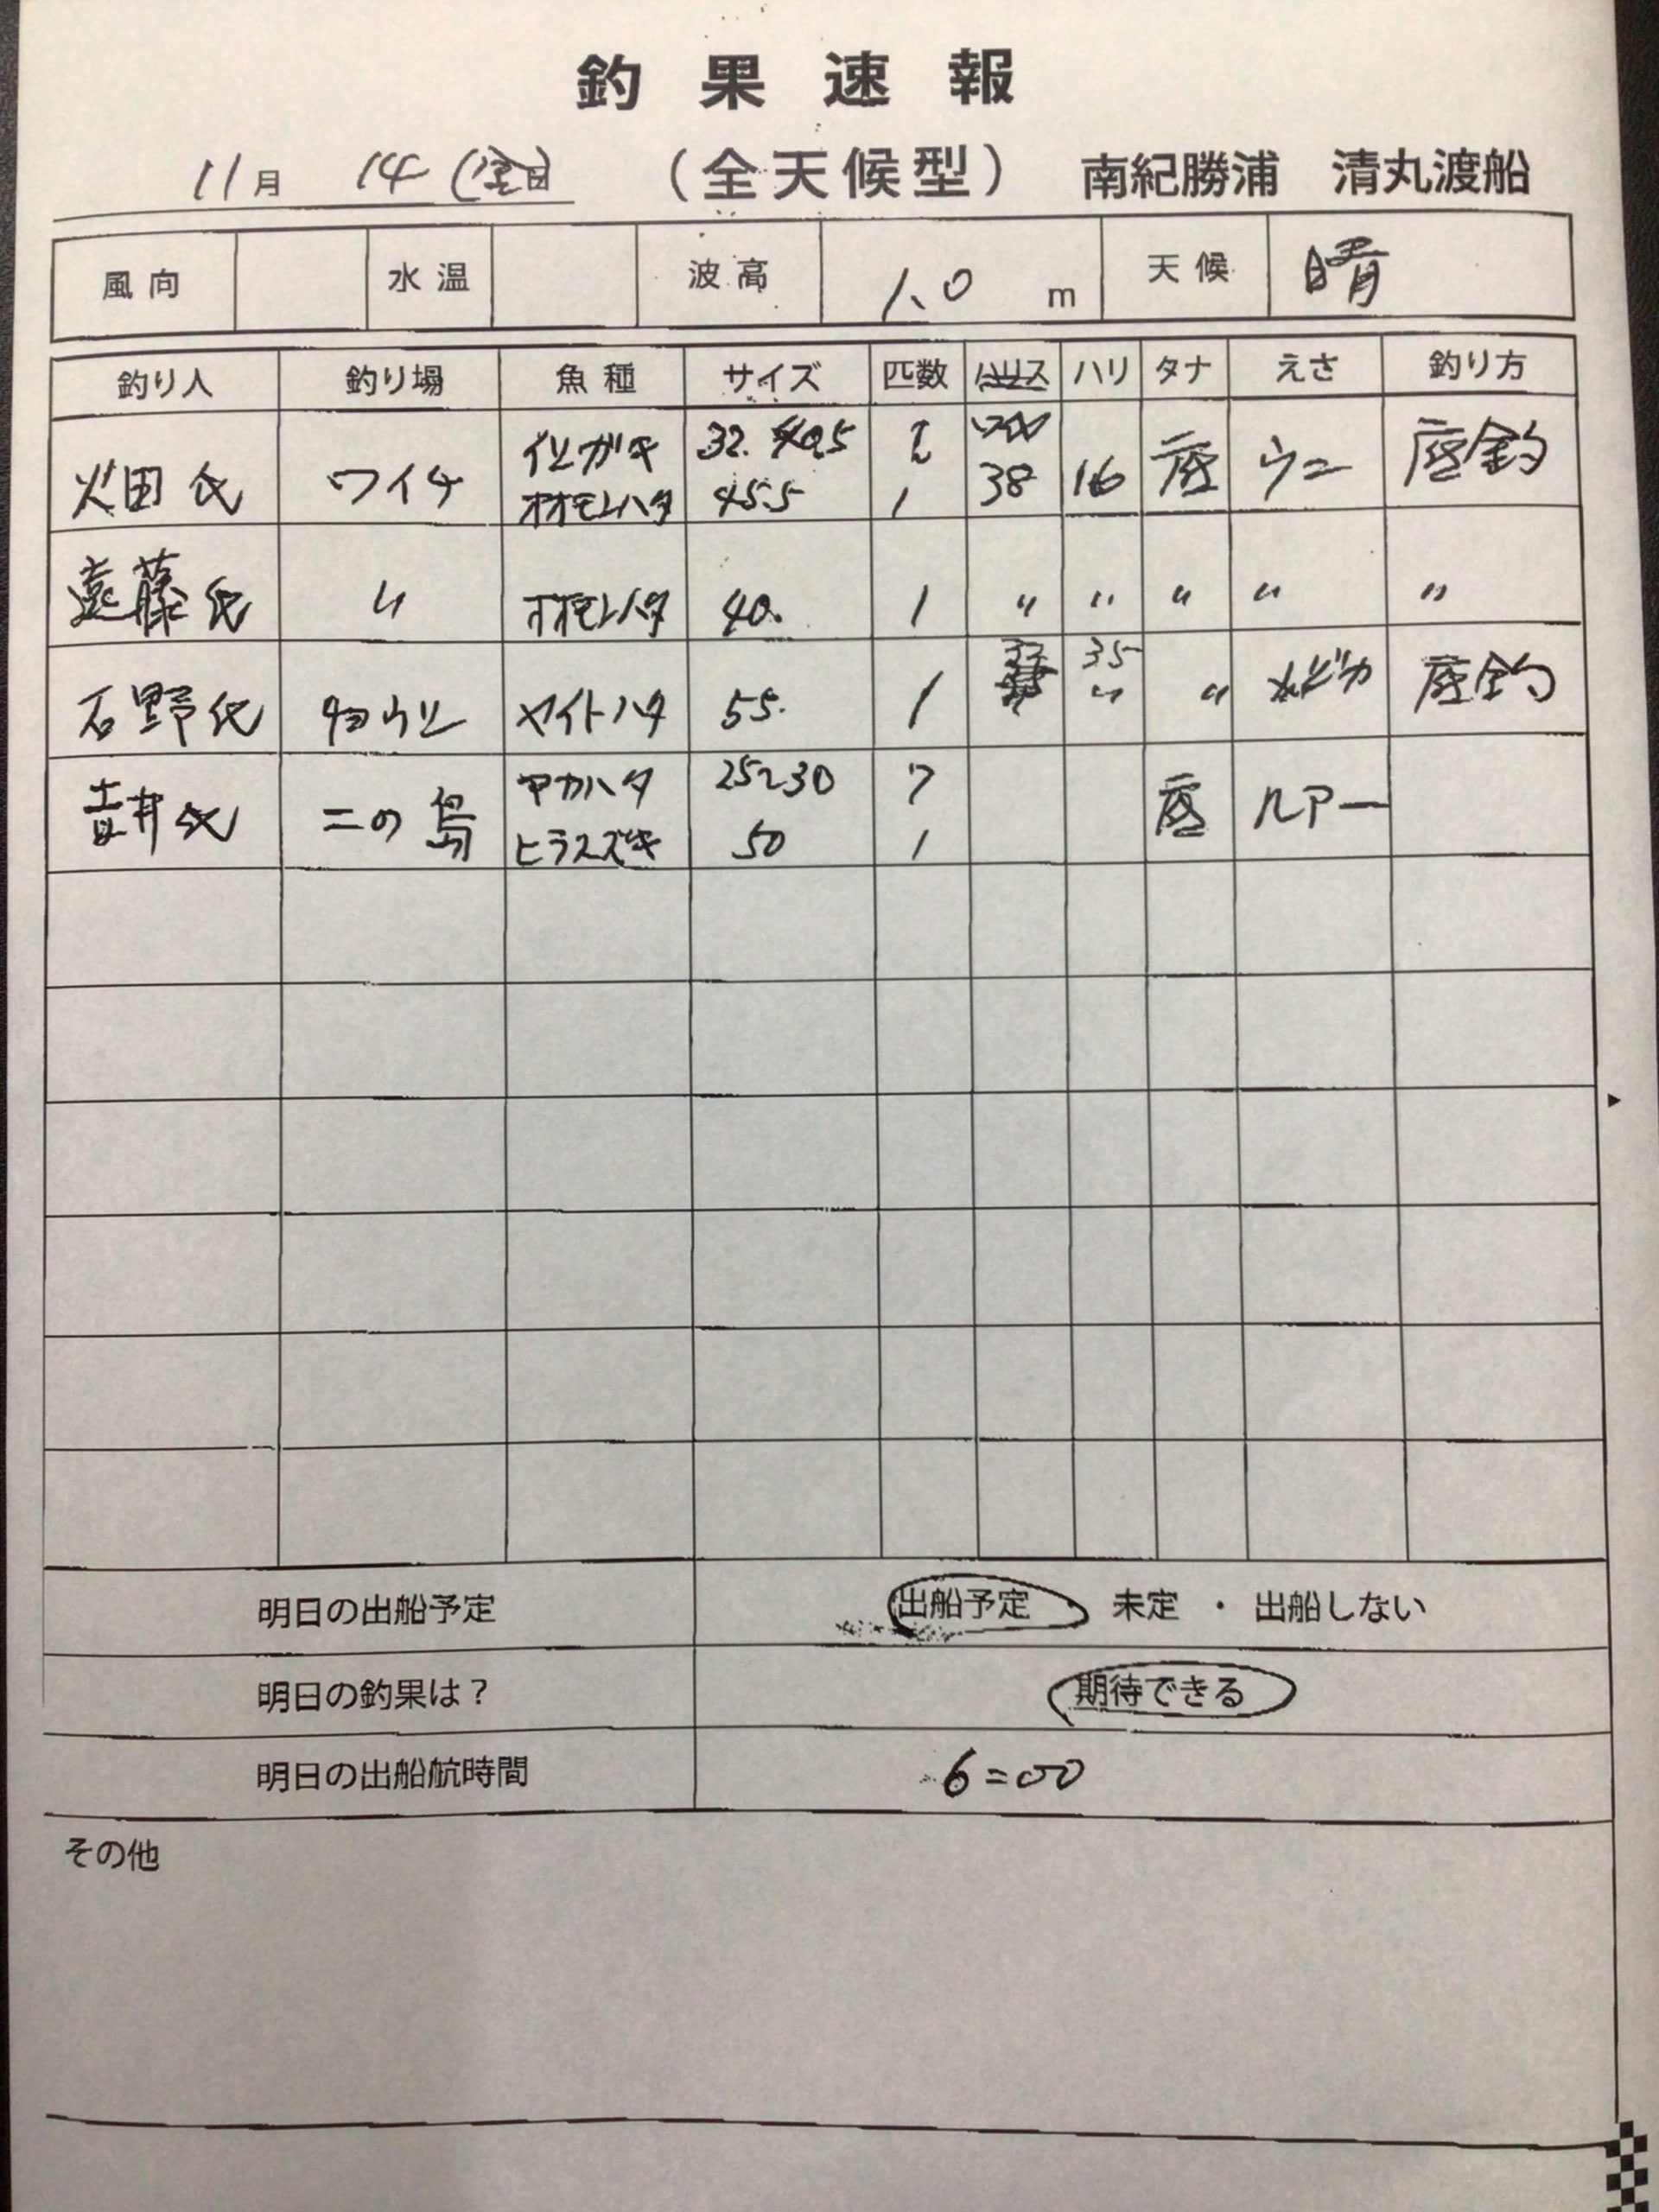 釣果速報
11月 14(金)日 (全天候型) 南紀勝浦 清丸渡船
風向 水温 波高 1.0 m 天候 晴
釣り人 釣り場 魚種 サイズ 匹数 ハリス ハリ タナ えさ 釣り方
イシガキ 32. 40.5 2
火田氏 ワイチ 38 16 底 ウニ 底釣
オオモンハタ 45.5 1
遠藤氏 〃 オオモンハタ 40. 1 〃 〃 〃 〃 〃
33 35
石野氏 ヤイトハタ 55. 1 〃 〃 底釣
アカハタ 25~30 7
吉井氏 二の島 底 ルアー
ヒラスズキ 50 1
明日の出船予定 出船予定 未定 ・ 出船しない
明日の釣果は? 期待できる
明日の出船航時間 6=00
その他